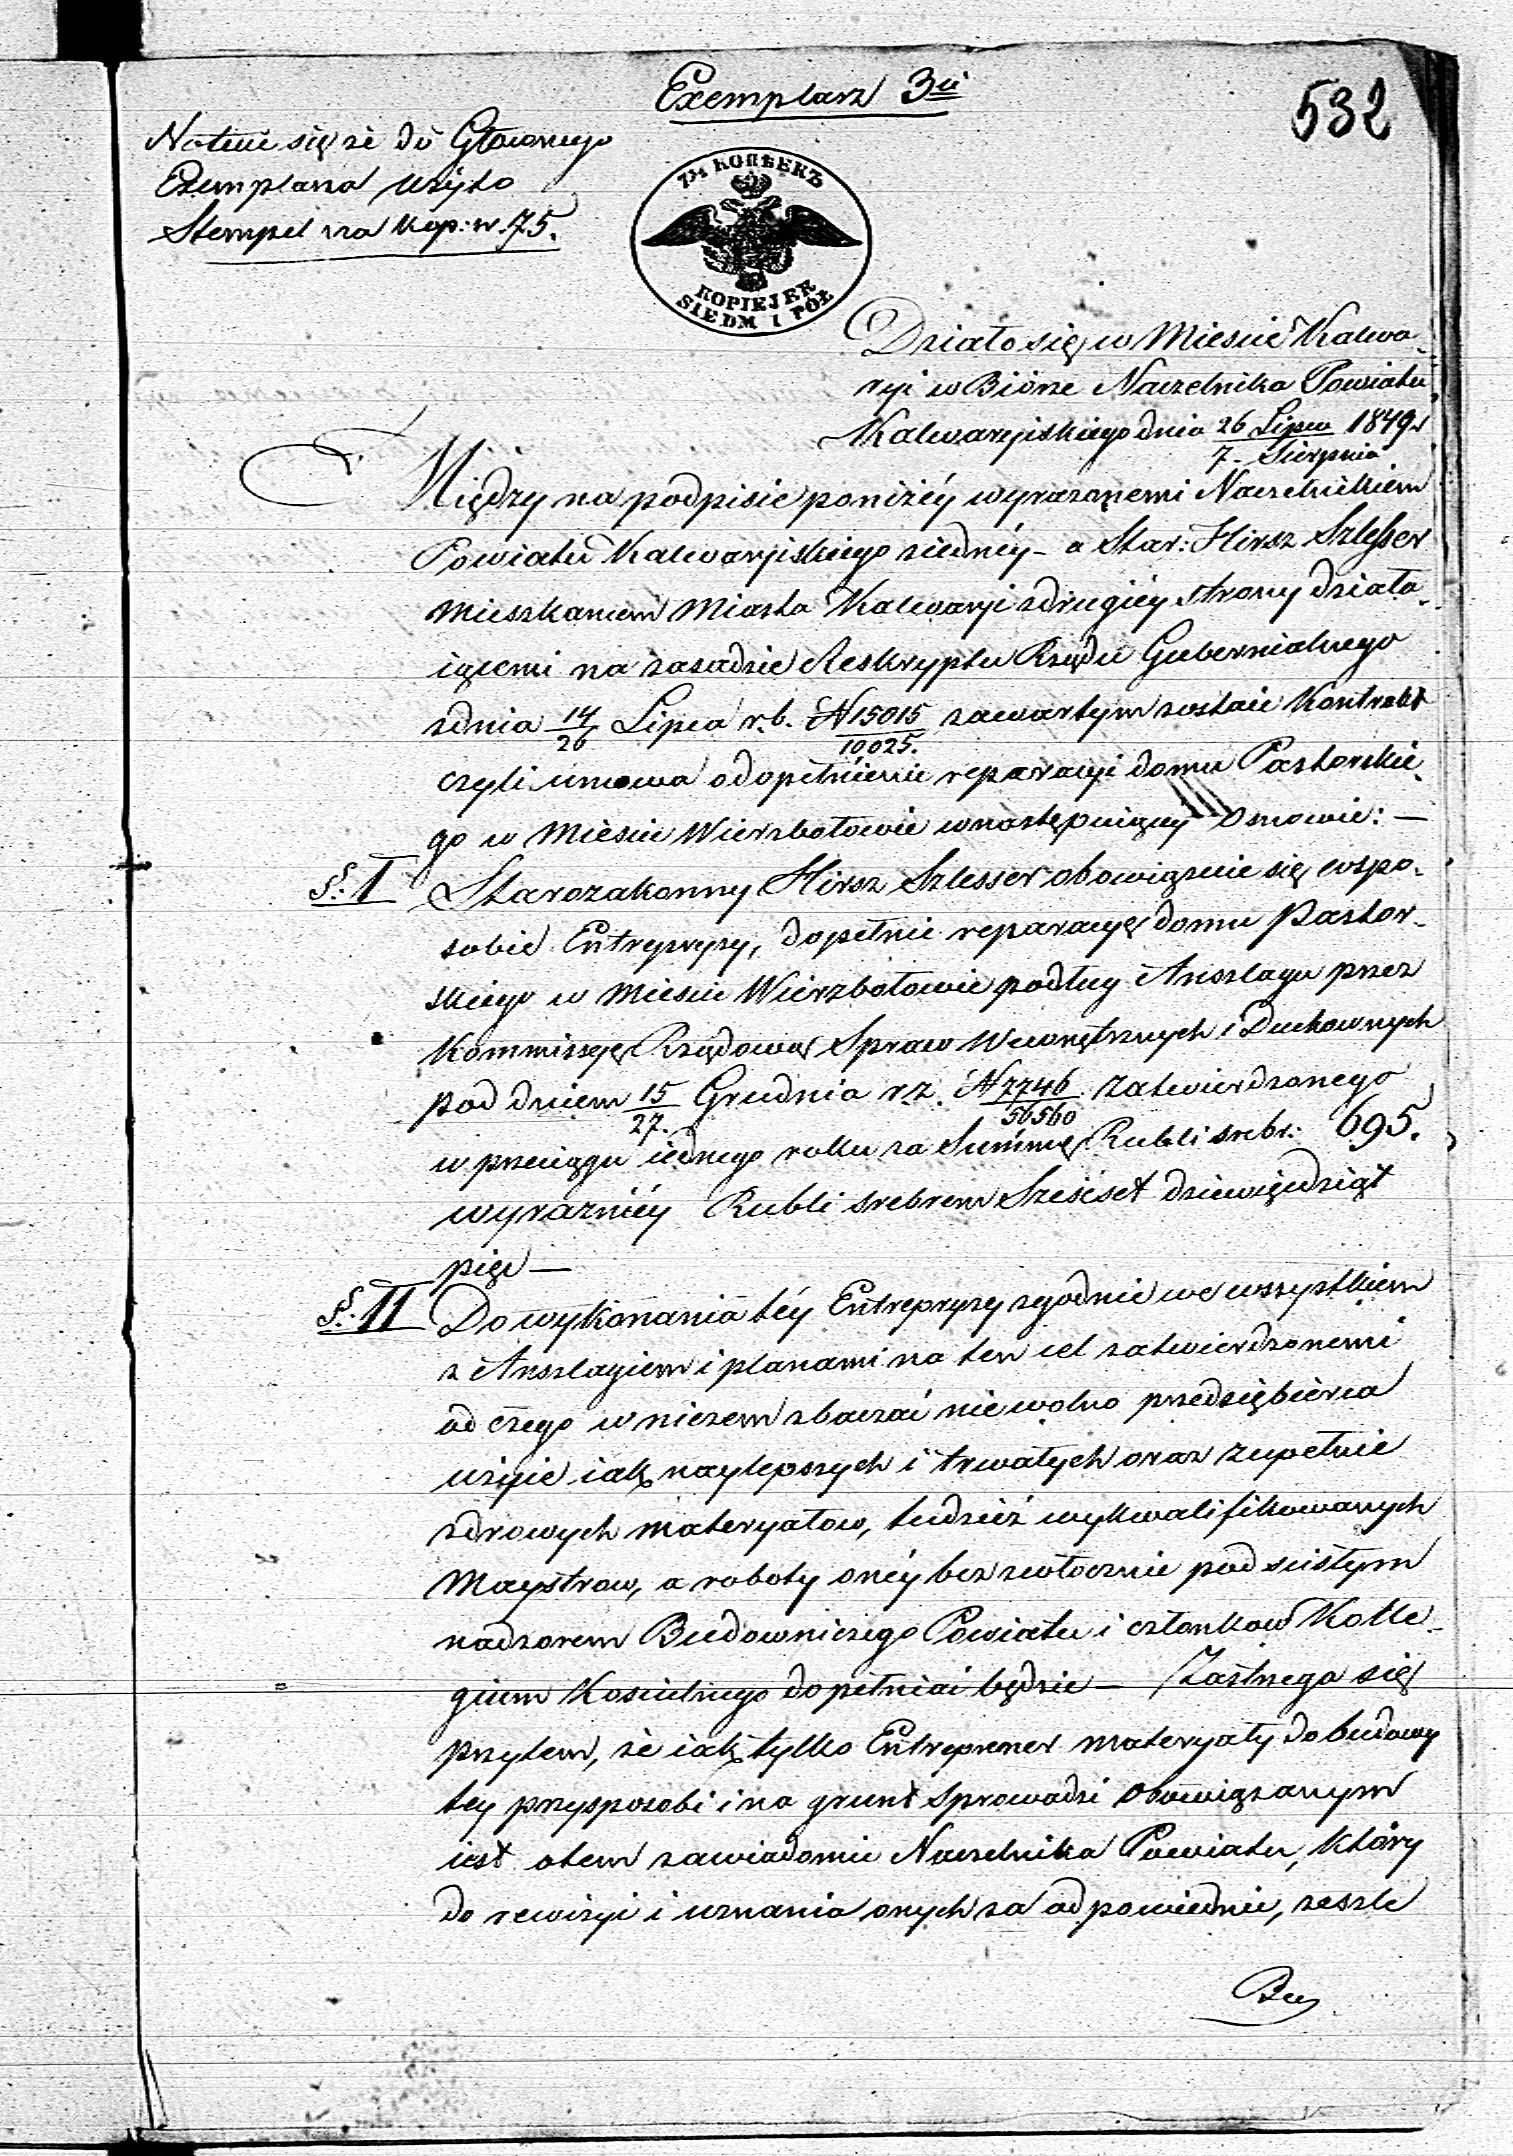 Exemplarz 3ci
532
Notuie się że do Głownego
Exemplarza użyto
Stempel na kop: w. 75.
7½ КОПѢЕКЪ
KOPIEJEK
SIEDM I PÓŁ
Działo się w Miescie Kalwa-
ryi w Biórze Naczelnika Powiatu
Kalwaryiskiego dnia 26 Lipca / 7 Sierpnia 1849 r
Między na podpisie poniżéy wyrażonemi Naczelnikiem
Powiatu Kalwaryiskiego ziednéy - a Star: Hirsz Szlesser
Mieszkancem Miasta Kalwaryi zdrugiéy strony działa-
iącemi na zasadzie Reskryptu Rządu Gubernialnego
zdnia 14/26 Lipca r.b. N 15015/10025. zawartym zostaie Kontrakt
czyli umowa o dopełnienie reparacyi domu Pastorskie-
go w Miescie Wierzbołowie wnastępuiącey Osnowie: —
§. I Starozakonny Hirsz Szlesser obowiązuie się wspo-
sobie Entrepryzy, dopełnic reparacyę domu Pastor-
skiego w Miescie Wierzbołowie podług Anszlagu przez
Kommissyę Rządową Spraw Wewnętrznych i Duchownych
pod dniem 15/27. Grudnia r.z. N 7746/56560 zatwierdzonego
w przeciągu iednego roku za Summę Rubli srebr: 695.
wyraźniéy Rubli srebrem Sześćset dziewięćdziąt
pięc —
§. II Do wykonania téy Entrepryzy zgodnie we wszystkiem
z Anszlagiem i planami na ten cel zatwierdzonemi
od czego w niczem zbaczać nie wolno przedsiębierca
użyie iak naylepszych i trwałych oraz zupełnie
zdrowych materyałow, tudzież wykwalifikowanych
Maystrow, a roboty onéy bezzwłocznie pod scisłym
nadzorem Budowniczego Powiatu i członkow Kolle-
gium Koscielnego dopełniać będzie — Zastrzega się
przytem, że iak tylko Entreprener materyały do budowy
tey przysposobi i na grunt sprowadzi Obowiązanym
iest otem zawiadomic Naczelnika Powiatu, który
do rewizyi i uznania onych za odpowiednie, zeszle
Bu